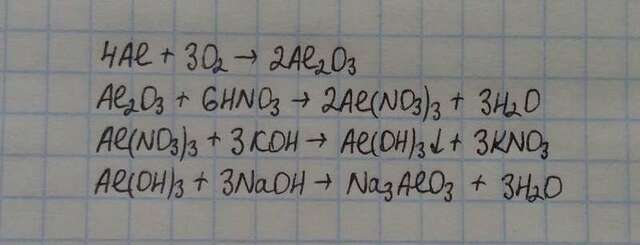 4Al + 3O₂ → 2Al₂O₃
Al₂O₃ + 6HNO₃ → 2Al(NO₃)₃ + 3H₂O
Al(NO₃)₃ + 3KOH → Al(OH)₃↓ + 3KNO₃
Al(OH)₃ + 3NaOH → Na₃AlO₃ + 3H₂O